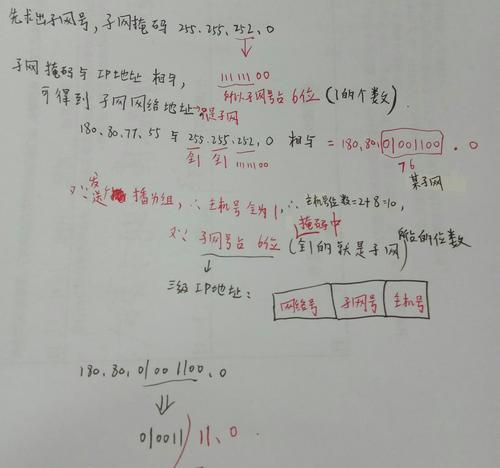 先求出子网号，子网掩码 255.255.252.0
11111100
子网掩码与IP地址 相与，
所以子网号占6位（1的个数）．
可得到子网网络地址
是子网
180.80.77.55 与 255.255.252.0 相与 = 180.80.01001100.0
全1 全1 111100
76
某子网
又∵发送 播为组，∴主机号全为1，∴主机号位数=2+8=10，
掩码中
又∵子网号占6位（全1的就是子网）所占的位数
三级IP地址：
网络号 子网号 主机号
180.80.01001100.0
010011 11.0